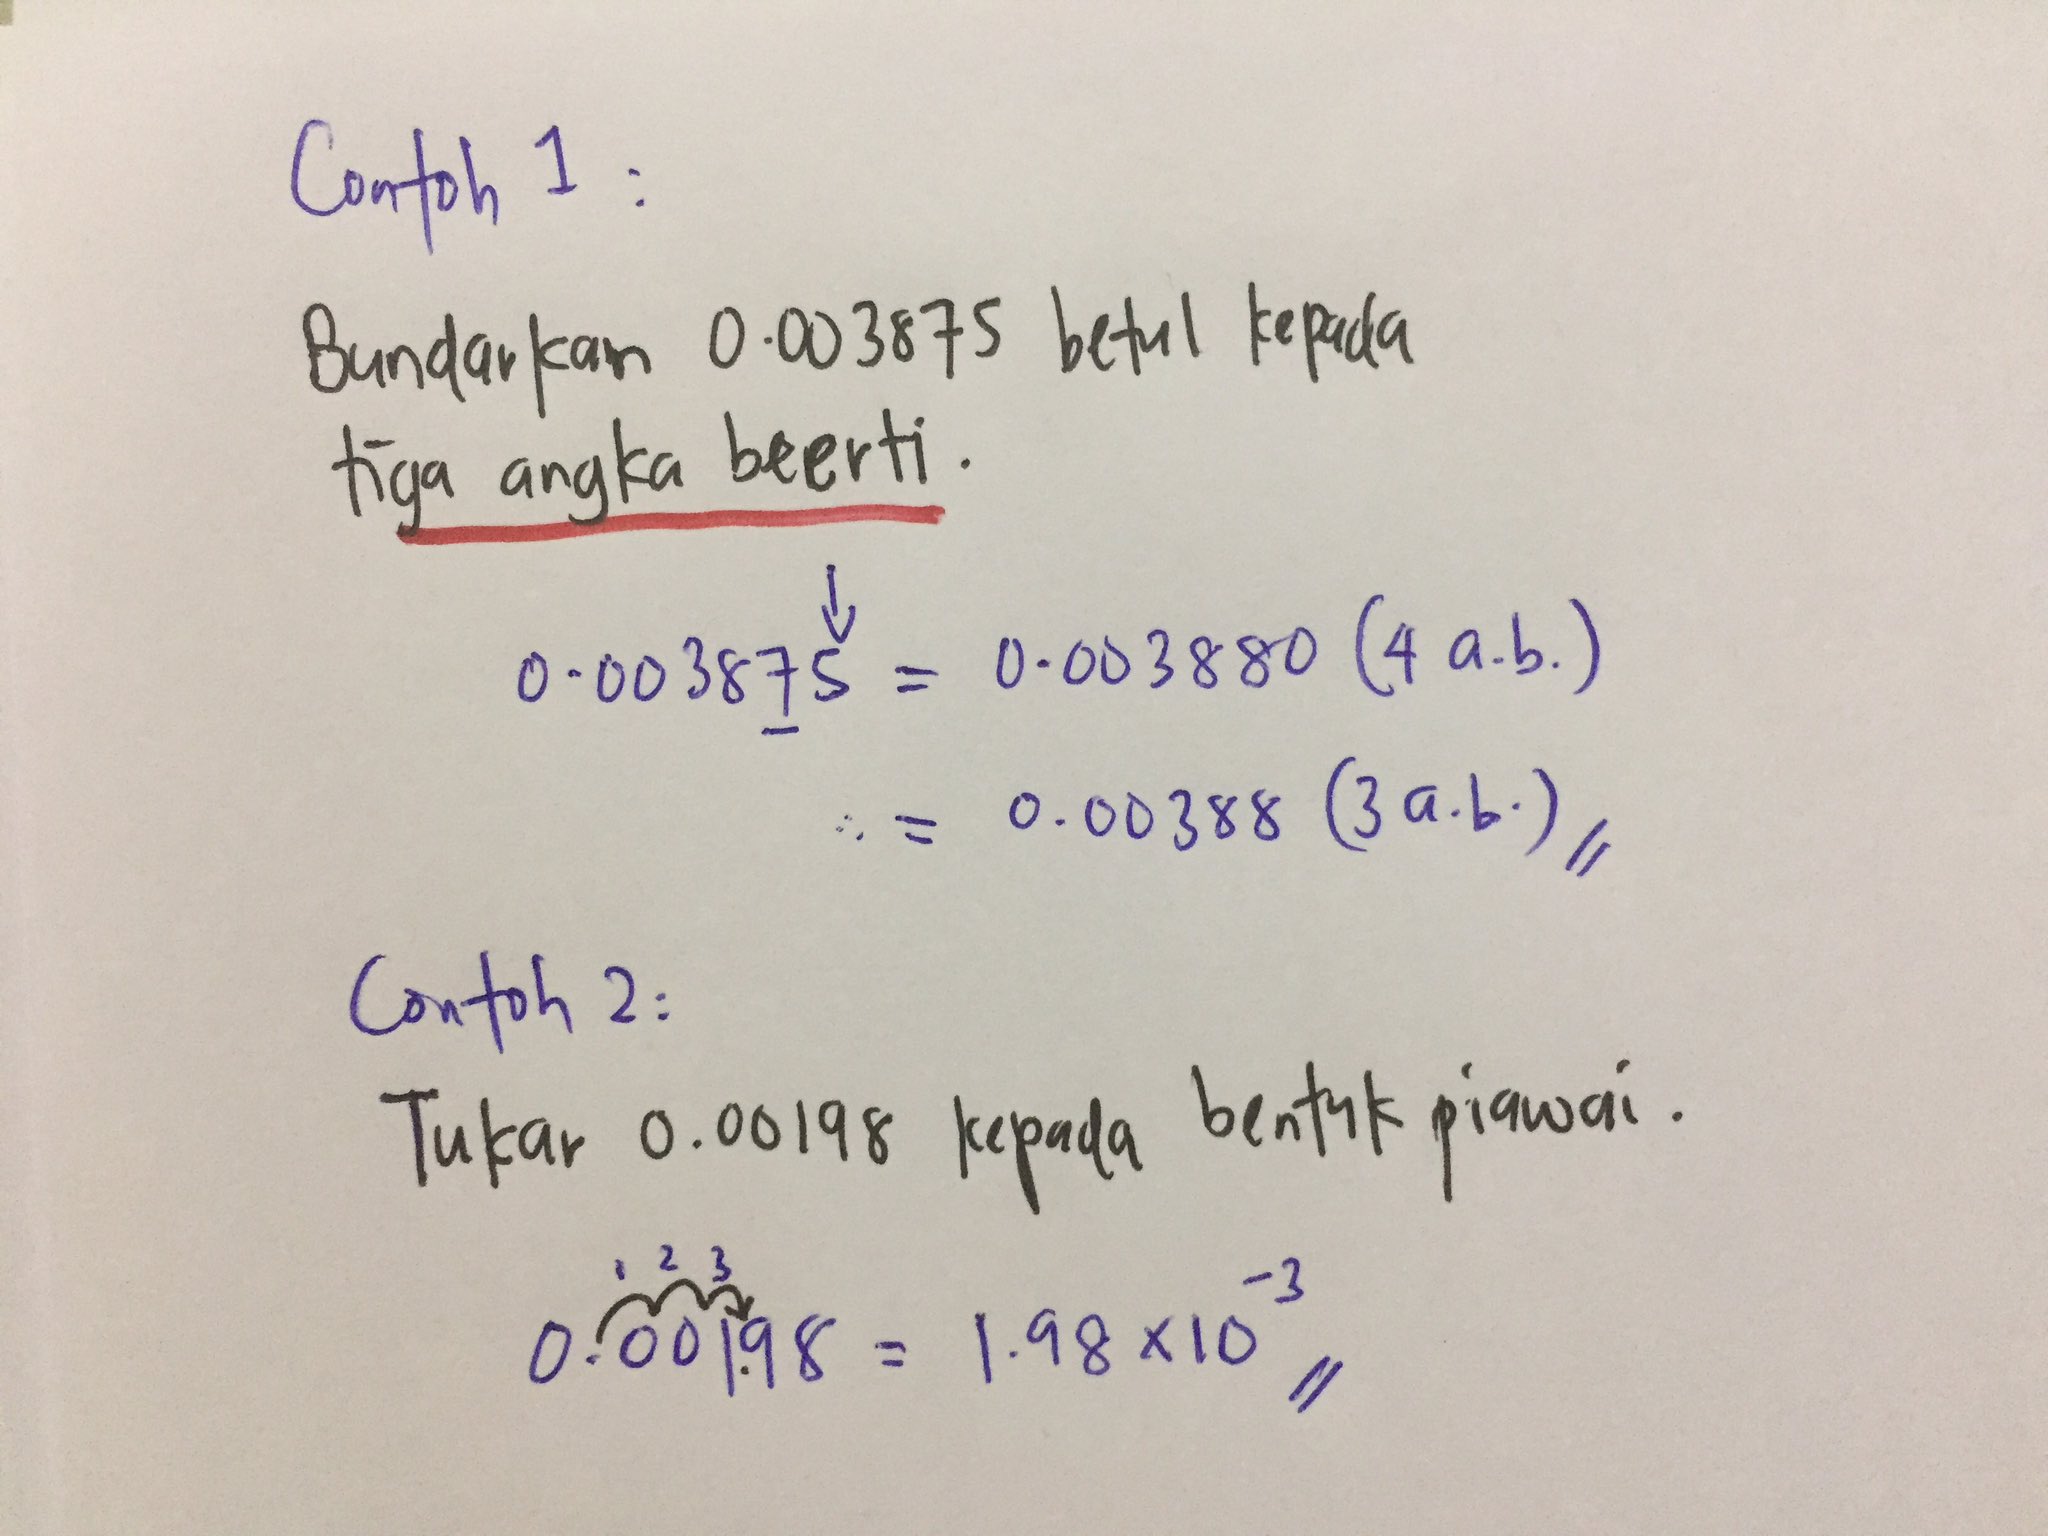 Contoh 1:
Bundarkan 0.003875 betul kepada
tiga angka beerti.
0.003875 = 0.003880 (4 a.b.)
∴ = 0.00388 (3 a.b.)//
Contoh 2:
Tukar 0.00198 kepada bentuk piawai.
1 2 3
0.001.98 = 1.98 × 10⁻³//